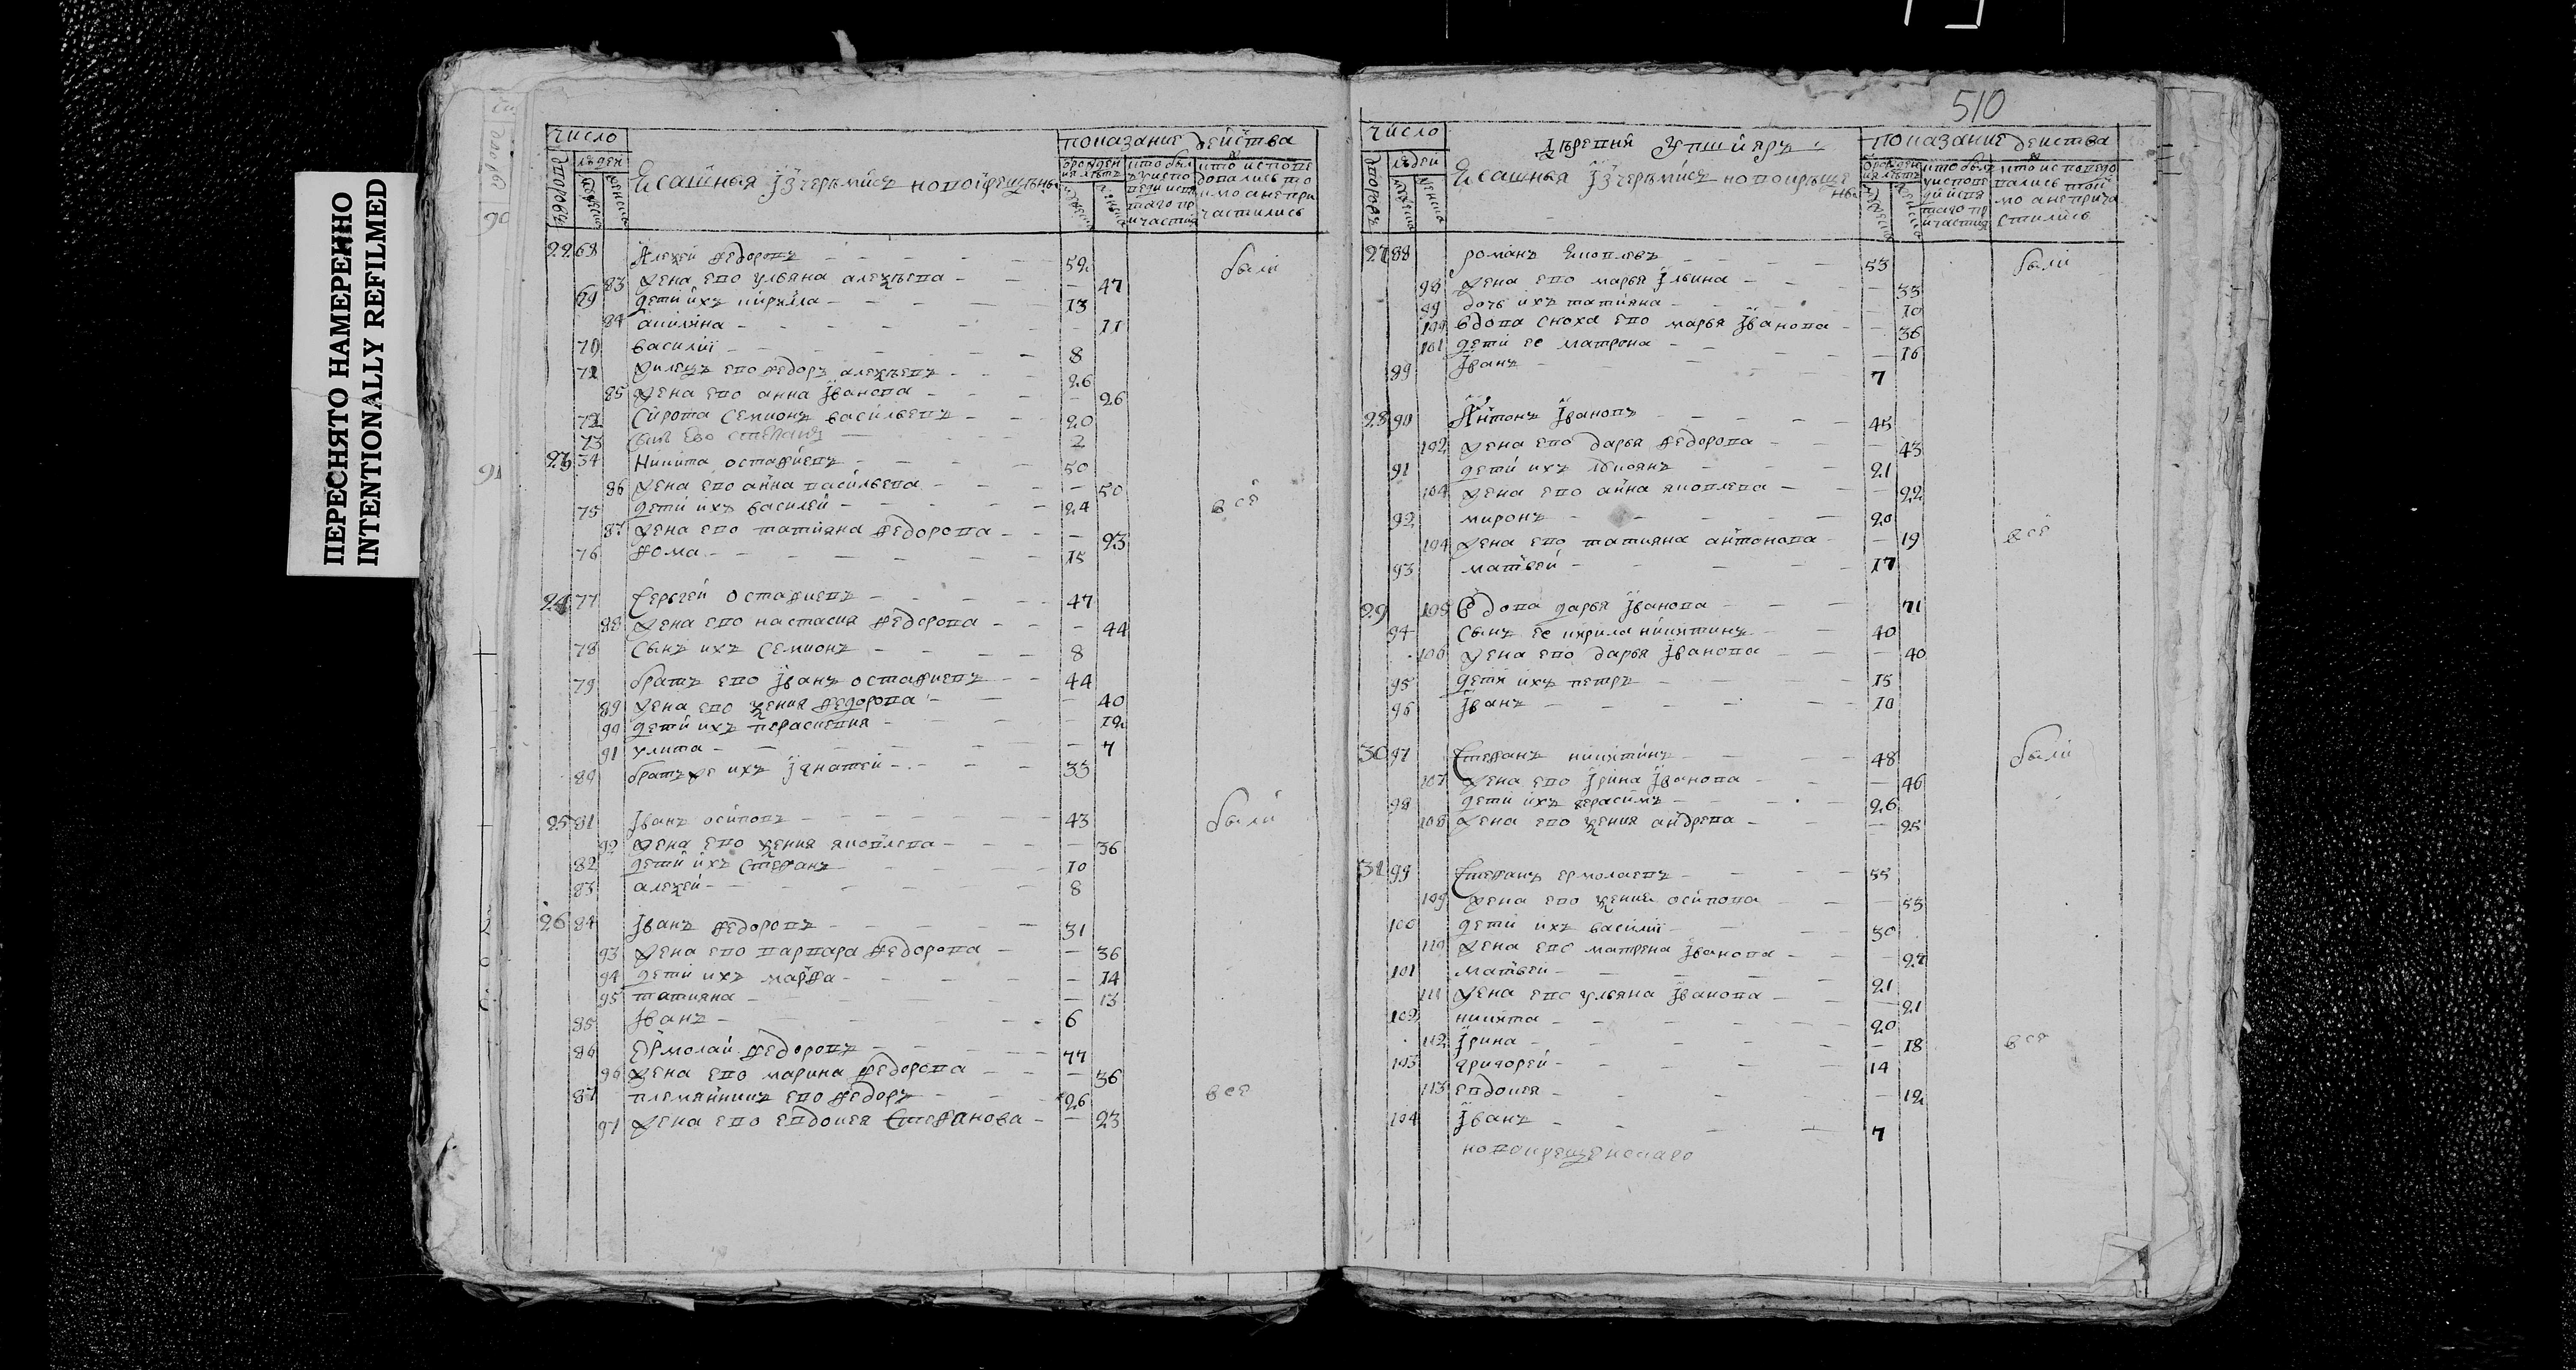 ПЕРЕСНЯТО НАМЕРЕННО
INTENTIONALLY REFILMED
число
показание действа
дворовъ
людей
мужеска
женска
Есашныя Iзчеремисъ новокрещены
22 68 Алеѯей Федоровъ 52 были
83 Жена ево ульяна алеѯѣева 47
69 дети ихъ кирила 13
84 акилина 11
70 василiй 8
71 жилецъ ево Федоръ алеѯѣевъ 26
85 Жена ево анна Iванова 26
72 Сирота Семионъ васильевъ 20
73 сынъ ево степанъ 2
23 34 Никита остафиевъ 50
86 Жена ево анна васильева 50 всѣ
75 дети ихъ василей 24
87 Жена ево татияна Федорова 23
76 Фома 15
24 77 Сергей Остафиевъ 47
88 Жена ево настасия Федорова 44
78 Сынъ ихъ Семионъ 8
79 братъ ево Iванъ остафиевъ 44
89 Жена ево ѯения Федорова 40
90 дети ихъ парасковия 12
91 улита 7
80 братъ же ихъ Iгнатей 33
25 81 Iванъ осиповъ 43 были
92 Жена ево ѯения яковлева 36
82 дети ихъ Стефанъ 10
83 алеѯей 8
26 84 Iванъ Федоровъ 31
93 Жена ево варвара Федорова 36
94 дети ихъ марфа 14
95 татияна 13
85 Iванъ 6
86 Ермолай Федоровъ 77
96 Жена ево марина Федорова 36
87 племянникъ ево Федоръ 26 всѣ
97 Жена ево евдокея Стефанова 23
510
число
деревни Упшияръ
показание действа
дворовъ
людей
мужеска
женска
Есашныя Iзчеремисъ новокрещены
27 88 романъ яковлевъ 53 были
98 Жена ево марья Iльина 33
99 дочь ихъ татияна 10
100 вдова сноха ево марья Iванова 36
101 дети ее матрона 16
89 Iванъ 7
28 90 Антонъ Iвановъ 45
102 Жена ево дарья Федорова 43
91 дети ихъ 21
104 Жена ево анна яковлева 22
92 миронъ 20
104 Жена ево татияна антонова 19 всѣ
93 матвей 17
29 105 Вдова дарья Iванова 71
94 Сынъ ее кирила никитинъ 40
106 Жена ево дарья Iванова 40
95 дети ихъ петръ 15
96 Iванъ 10
30 97 Степанъ никитинъ 48 были
107 Жена ево Iрина Iванова 46
98 дети ихъ герасимъ 26
108 Жена ево ѯения андрева 25
31 99 Стефанъ ермолаевъ 55
109 Жена ево ѯения осипова 53
100 дети ихъ василiй 30
110 Жена ево матрена Iванова 27
101 матвей 21
111 Жена ево ульяна Iванова 21
102 никита 20
112 Iрина 18 всѣ
103 григорей 14
113 евдокея 12
104 Iванъ 7
новокрещенскаго